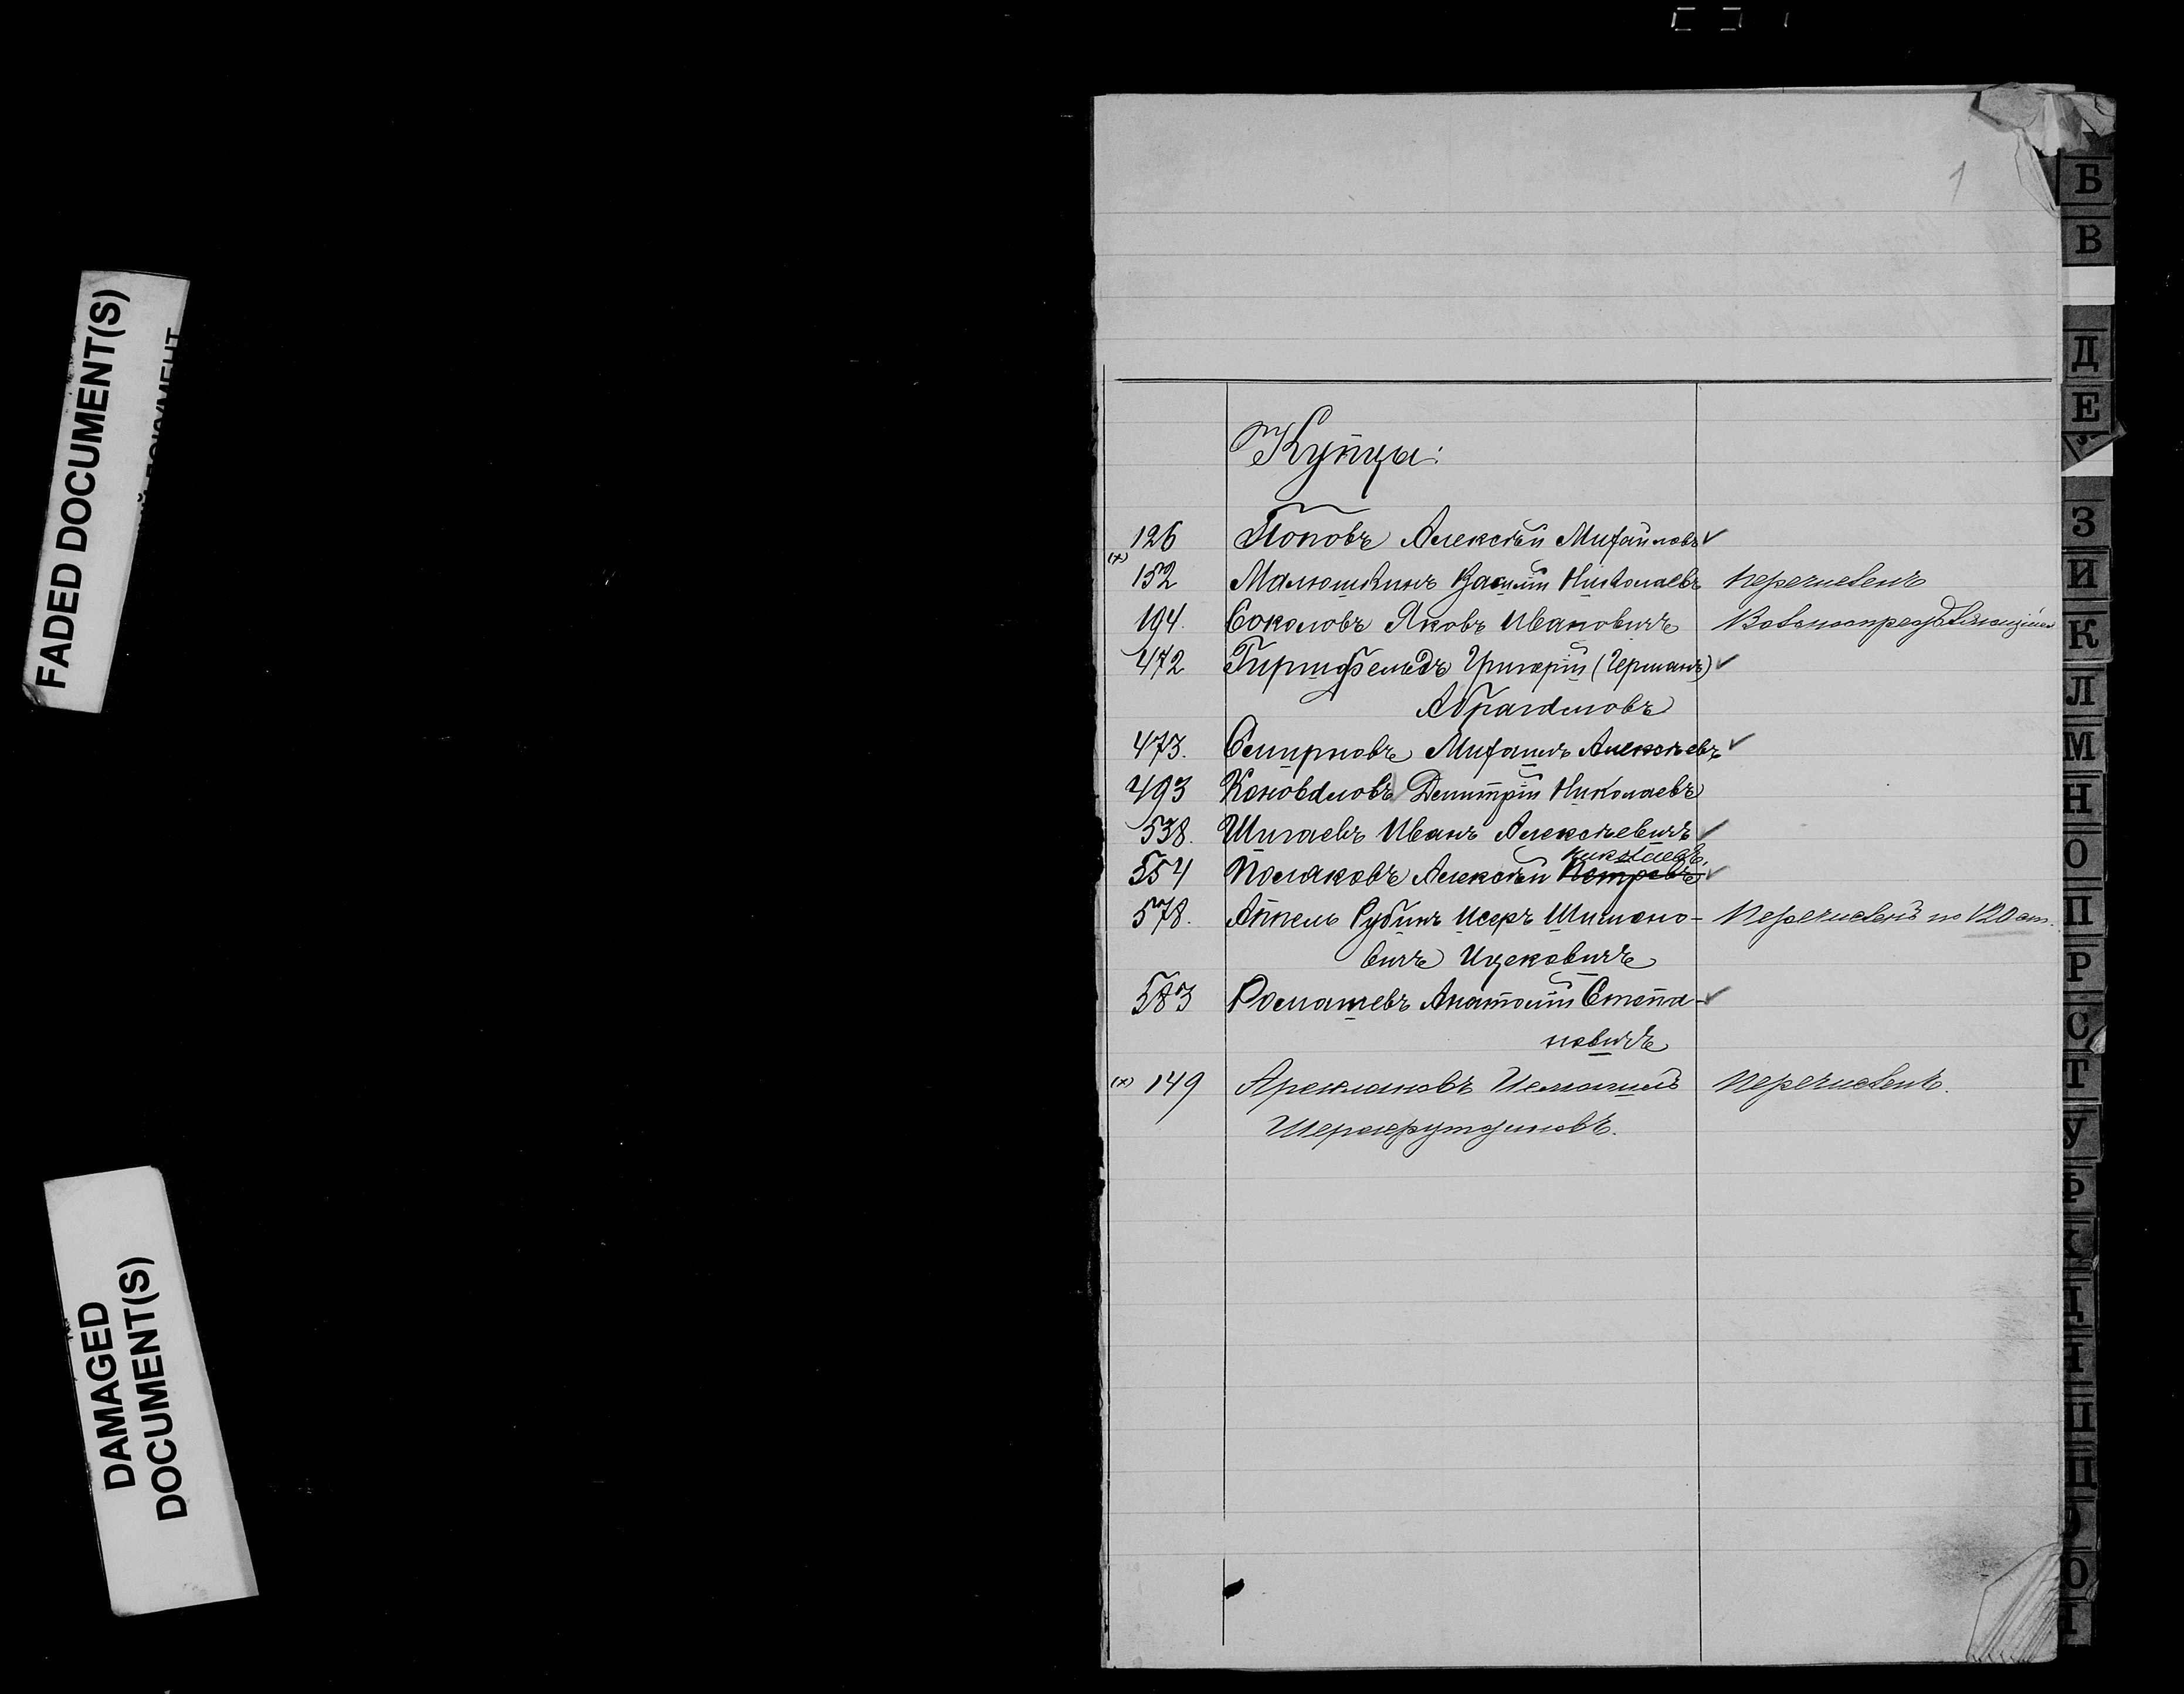 FADED DOCUMENT(S)
DAMAGED
DOCUMENT(S)
1
Купцы:
126 Поповъ Алексѣй Михайловъ ✓
(x)
152 Малюшкинъ Василій Николаевъ перечисленъ
194. Соколовъ Яковъ Ивановичъ
472 Гиршфельдъ Григорій (Германъ) ✓
Абрамовъ
473. Смирновъ Михаилъ Алексѣевъ ✓
493 Коноваловъ Дмитрій Николаевъ
538. Шигаевъ Иванъ Алексѣевичъ ✓
Николаевъ.
554 Полаковъ Алексѣй Петровъ ✓
578. Аппель Рубинъ Исеръ Шимоно- Перечисленъ по 120 ст.
вичъ Ицековичъ
583 Ромашевъ Анатолій Степа- ✓
новичъ
(x) 149 Ареклановъ Перечисленъ.
Б
В
Д
Е
З
И
К
Л
М
Н
О
П
Р
С
Т
У